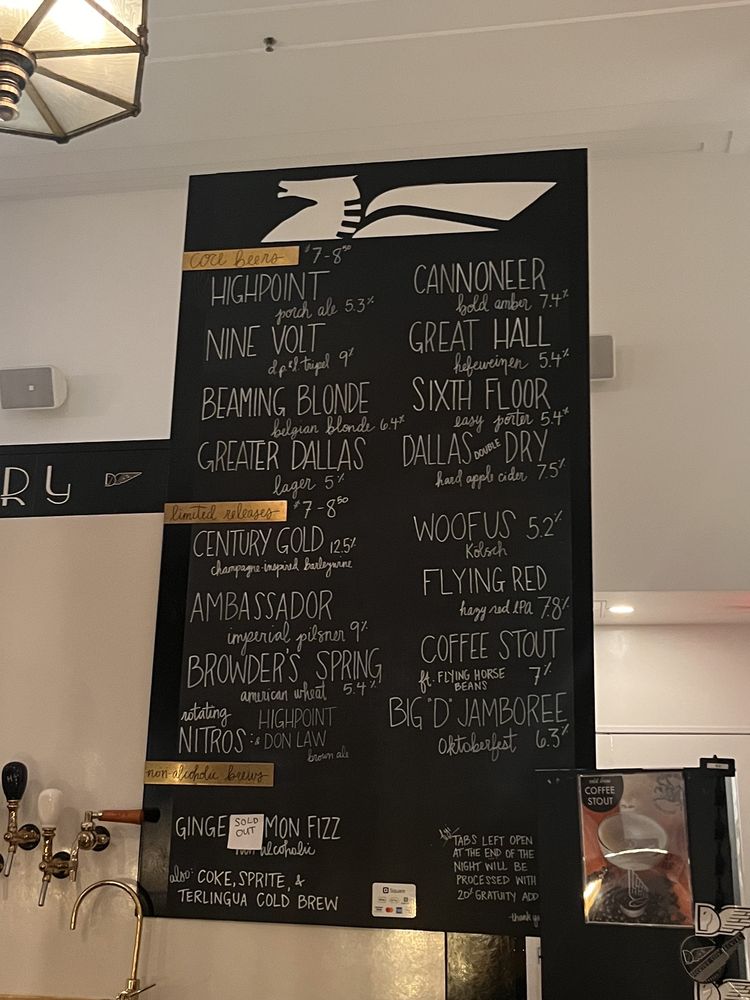 core beers $7-8⁵⁰
HIGHPOINT
porch ale 5.3%
NINE VOLT
d.p.&l. tripel 9%
BEAMING BLONDE
belgian blonde 6.4%
GREATER DALLAS
lager 5%
CANNONEER
bold amber 7.4%
GREAT HALL
hefeweizen 5.4%
SIXTH FLOOR
easy porter 5.4%
DALLAS DOUBLE DRY
hard apple cider 7.5%
RY
limited releases $7-8⁵⁰
CENTURY GOLD 12.5%
champagne-inspired barleywine
AMBASSADOR
imperial pilsner 9%
BROWDER'S SPRING
american wheat 5.4%
rotating HIGHPOINT
NITROS: & DON LAW
brown ale
WOOFUS 5.2%
Kölsch
FLYING RED
hazy red IPA 7.8%
COFFEE STOUT
ft. FLYING HORSE 7%
BEANS
BIG "D" JAMBOREE
Oktoberfest 6.3%
non-alcoholic brews
GINGE SOLD MON FIZZ
OUT
alcoholic
also: COKE, SPRITE, &
TERLINGUA COLD BREW
TABS LEFT OPEN
AT THE END OF THE
NIGHT WILL BE
PROCESSED WITH
20% GRATUITY ADD
-thank y
Square
COFFEE
STOUT